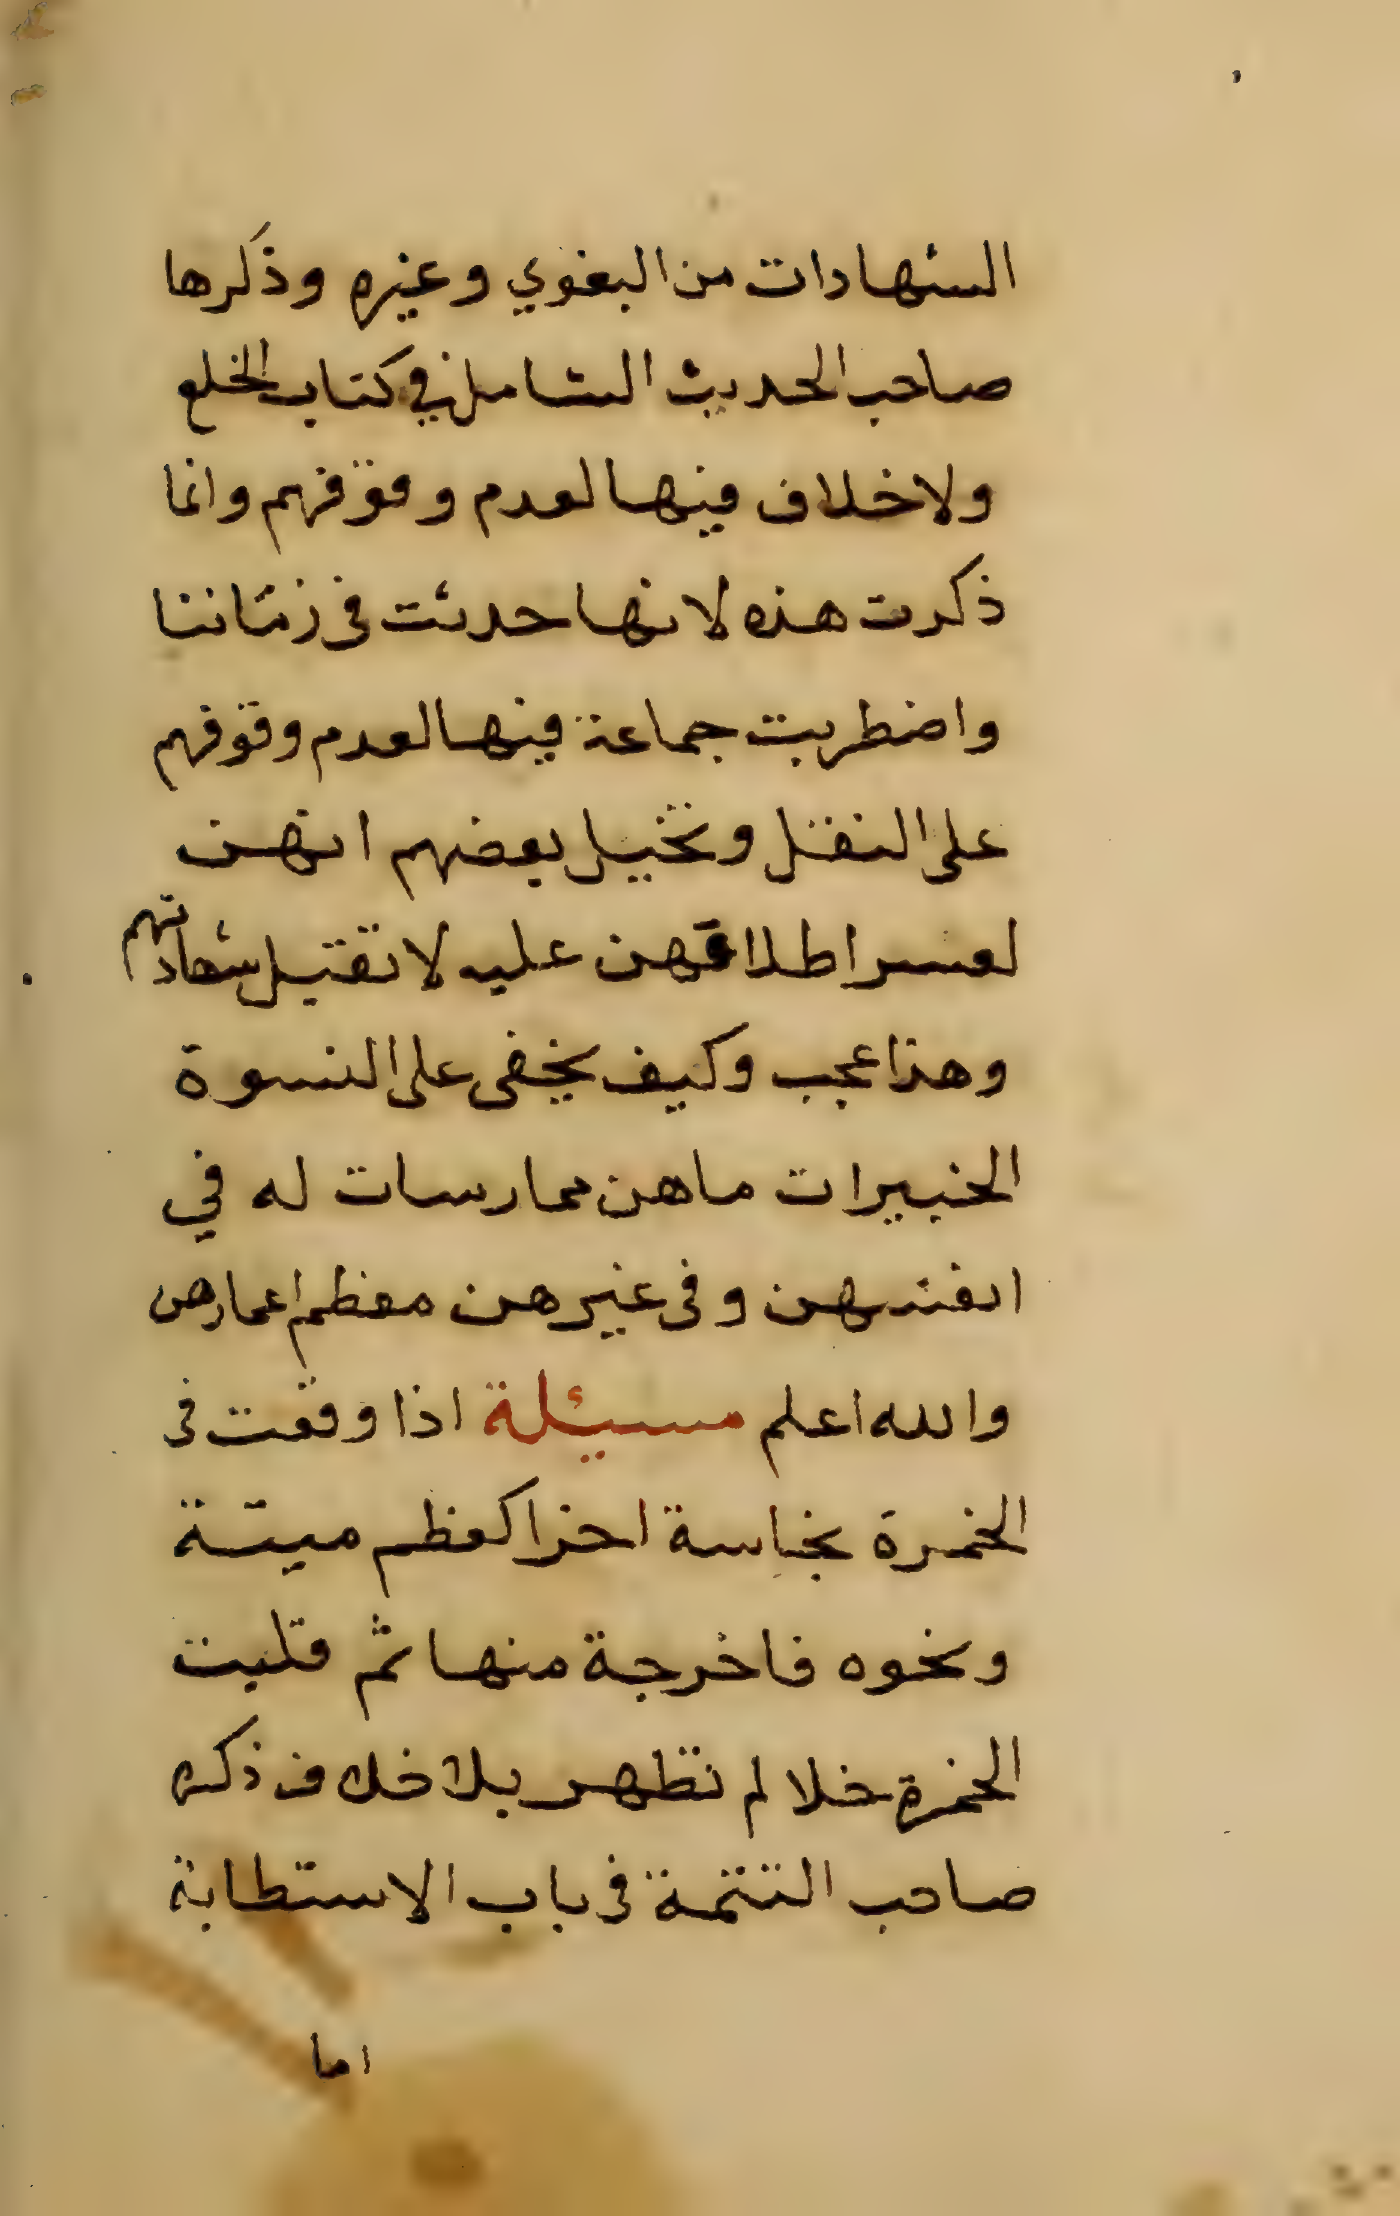 الشهادات من البغوي وغيره وذكرها
صاحب الحديث الشامل في كتاب الخلع
ولا خلاف فيها لعدم وقوفهم وانما
ذكرت هذه لانها حدثت في زماننا
واضطربت جماعة فيها لعدم وقوفهم
على النقل وتخيل بعضهم انهن
لعسر اطلاقهن عليه لا تقبل شهادتهم
وهذا عجب وكيف يخفى على النسوة
الخبيرات ما هن ممارسات له في
انفسهن وفي غيرهن معظم اعمارهن
والله اعلم مسيئلة اذا وقعت في
الخمرة نجاسة اخرا كعظم ميتة
ونحوه فاخرجة منها ثم قلبت
الخمرة خلا لم تطهر بلا خلاف ذكره
صاحب التتمة في باب الاستطابة
اما